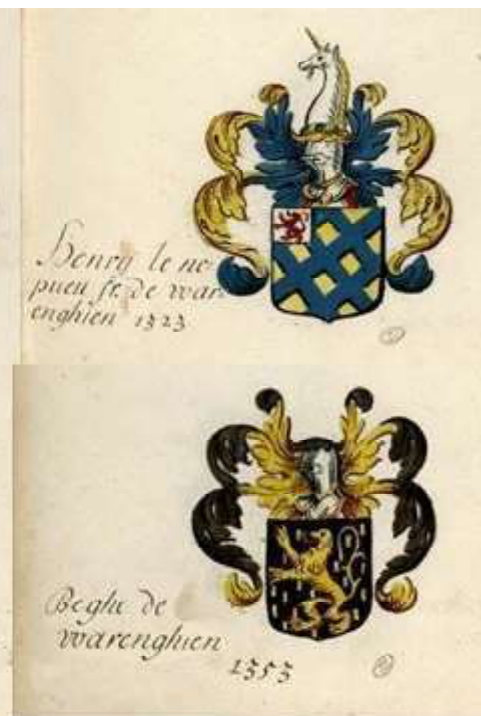 Henry le ne
pueu sr. de war-
enghien 1323
Beghe de
warenghien
1353